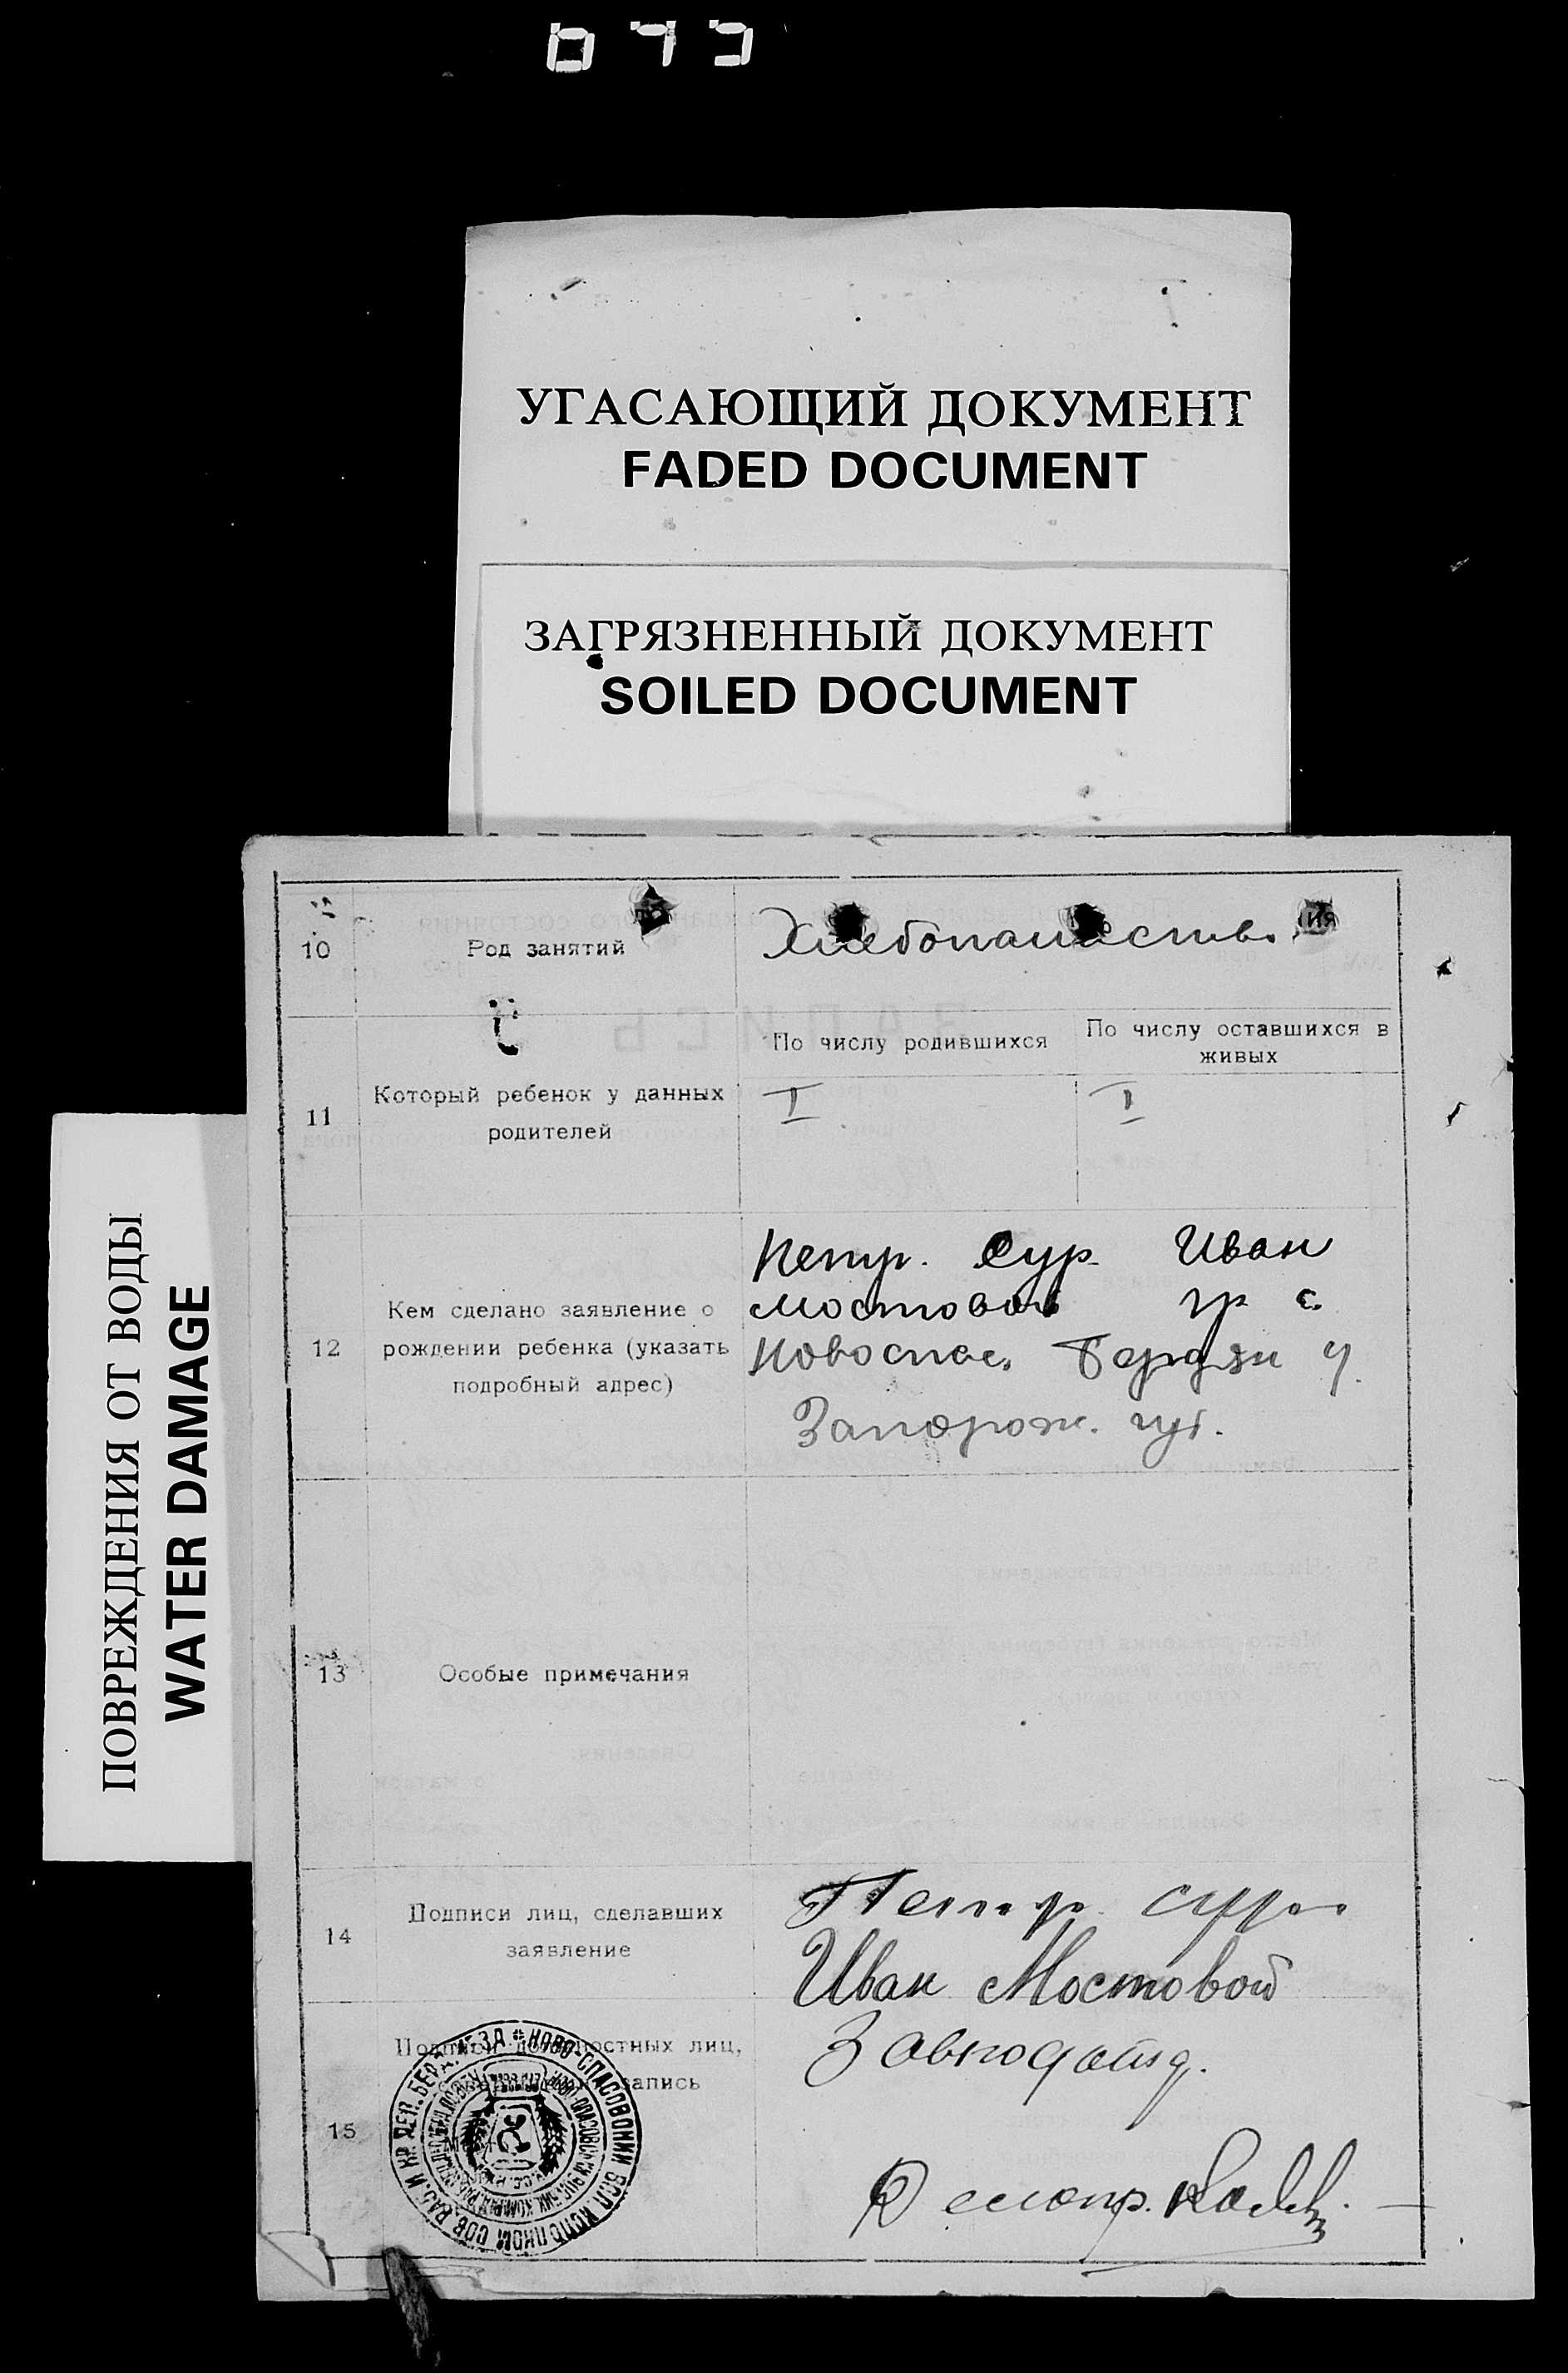 УГАСАЮЩИЙ ДОКУМЕНТ
FADED DOCUMENT
ЗАГРЯЗНЕННЫЙ ДОКУМЕНТ
SOILED DOCUMENT
ПОВРЕЖДЕНИЯ ОТ ВОДЫ
WATER DAMAGE
10
Род занятий
Хлебопашество
11
Который ребенок у данных
родителей
По числу родившихся
I
По числу оставшихся в
живых
I
12
Кем сделано заявление о
рождении ребенка (указать
подробный адрес)
Петр. Сур. Иван
Мостовой гр с.
Новоспас. Бердян у.
Запорож. губ.
13
Особые примечания
14
Подписи лиц, сделавших
заявление
Петр
Иван Мостовой
15
лиц,
запись
НОВО-СПАСОВСКИЙ ВОЛ. ИСПОЛКОМ СОВ. РАБ. И КР. ДЕП. БЕРД. УЕЗДА